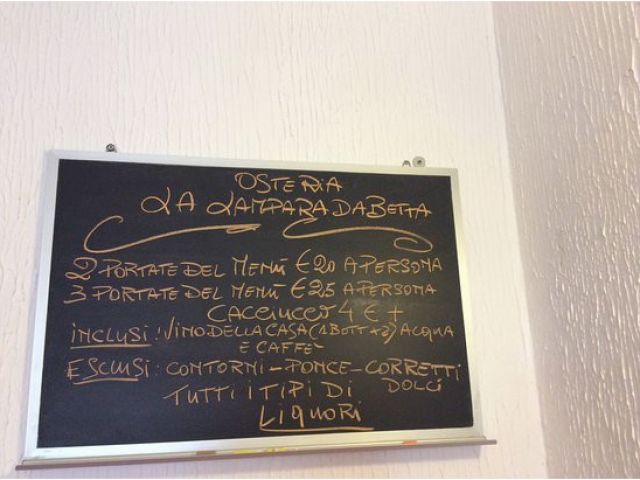 OSTERIA
LA LAMPARA DA BETTA
2 PORTATE DEL MENÙ €20 A PERSONA
3 PORTATE DEL MENÙ €25 A PERSONA
CACCIUCCO 4 € +
INCLUSI: VINO DELLA CASA (1 BOTT X 2) ACQUA
E CAFFÈ
ESCLUSI: CONTORNI - PONCE - CORRETTI
DOLCI
TUTTI I TIPI DI
LIQUORI